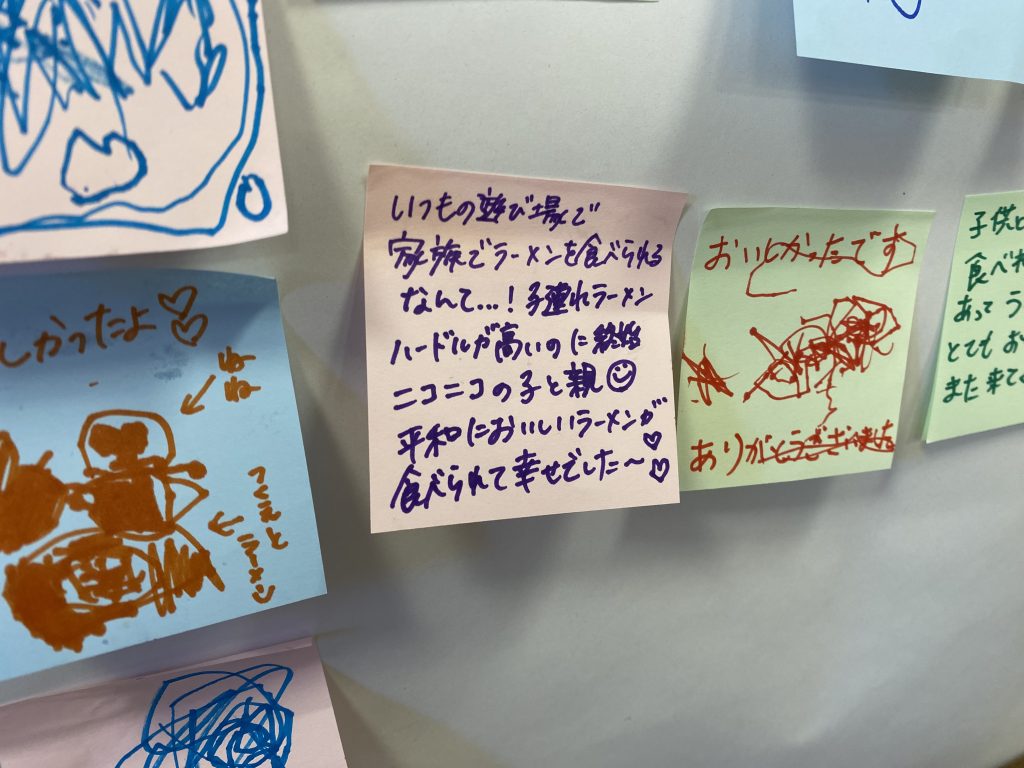 しかったよ♡♡
ねね
つくえと
ラーメン
いつもの遊び場で
家族でラーメンを食べられる
なんて…！子連れラーメン
ハードルが高いのに終始
ニコニコの子と親☺
平和においしいラーメンが
食べられて幸せでした〜♡♡
おいしかったです
ありがとうございました
子供と
食べれ
あって う
とても お
また来て